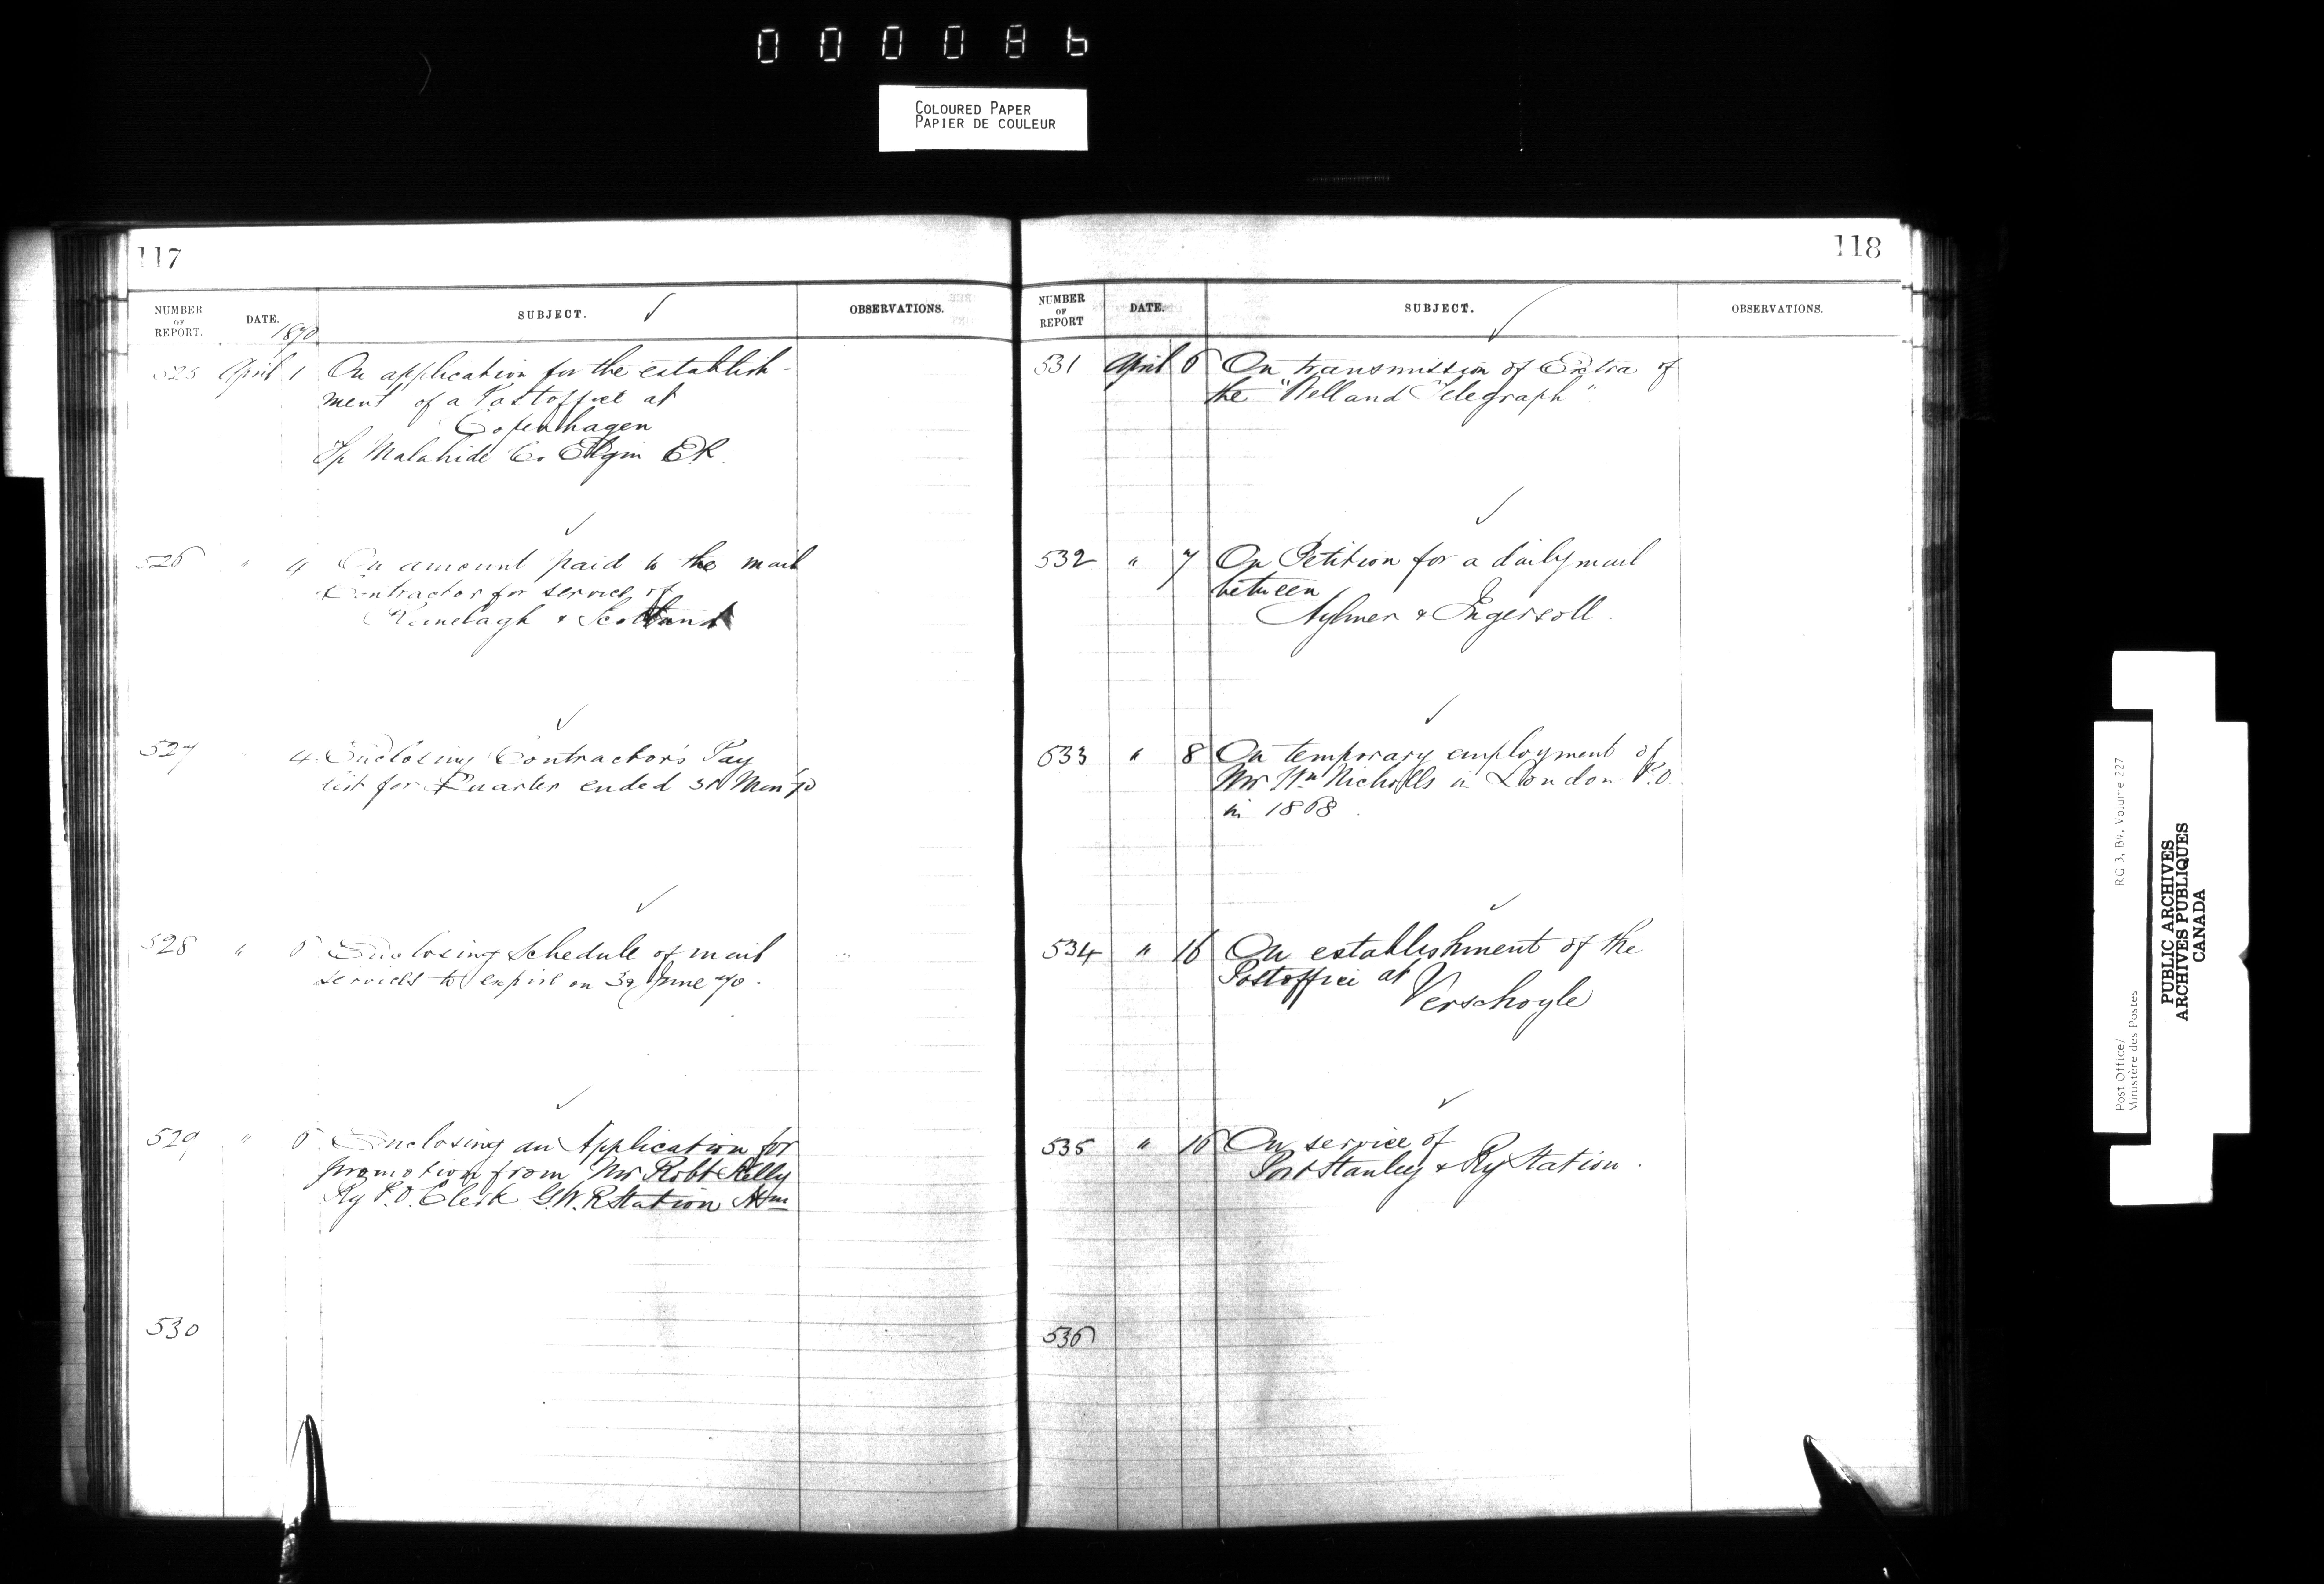 00008b
COLOURED PAPER
PAPIER DE COULEUR
117
NUMBER OF REPORT. DATE. SUBJECT. OBSERVATIONS.
1870
525 April 1 On application for the establish-
ment of a Postoffice at
Copenhagen
Tp Malahide Co Elgin ER.
526 " 4 On amount paid to the mail
Contractor for service of
Ranelagh & Scotland
527 4 Enclosing Contractor's Pay
list for Quarter ended 31 Mar '70
528 " 5 Enclosing Schedule of mail
services to expire on 30 June '70.
529 " 5 Enclosing an Application for
promotion from Mr Robt Kelly
Ry P.O. Clerk G.W.R Station Hm
530
118
NUMBER OF REPORT DATE. SUBJECT. OBSERVATIONS.
531 April 6 On transmission of Extra of
the "Welland Telegraph".
532 " 7 On Petition for a daily mail
between
Aylmer & Ingersoll.
533 " 8 On temporary employment of
Mr Wm Nicholls in London P.O.
in 1868.
534 " 16 On establishment of the
Postoffice at
Verschoyle
535 " 16 On service of
Port Stanley & Ry Station.
536
Post Office/ RG 3, B4, Volume 227
Ministère des Postes
PUBLIC ARCHIVES
ARCHIVES PUBLIQUES
CANADA